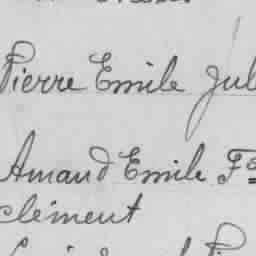 Pierre Emile Jul
Amand Emile Fs
clément